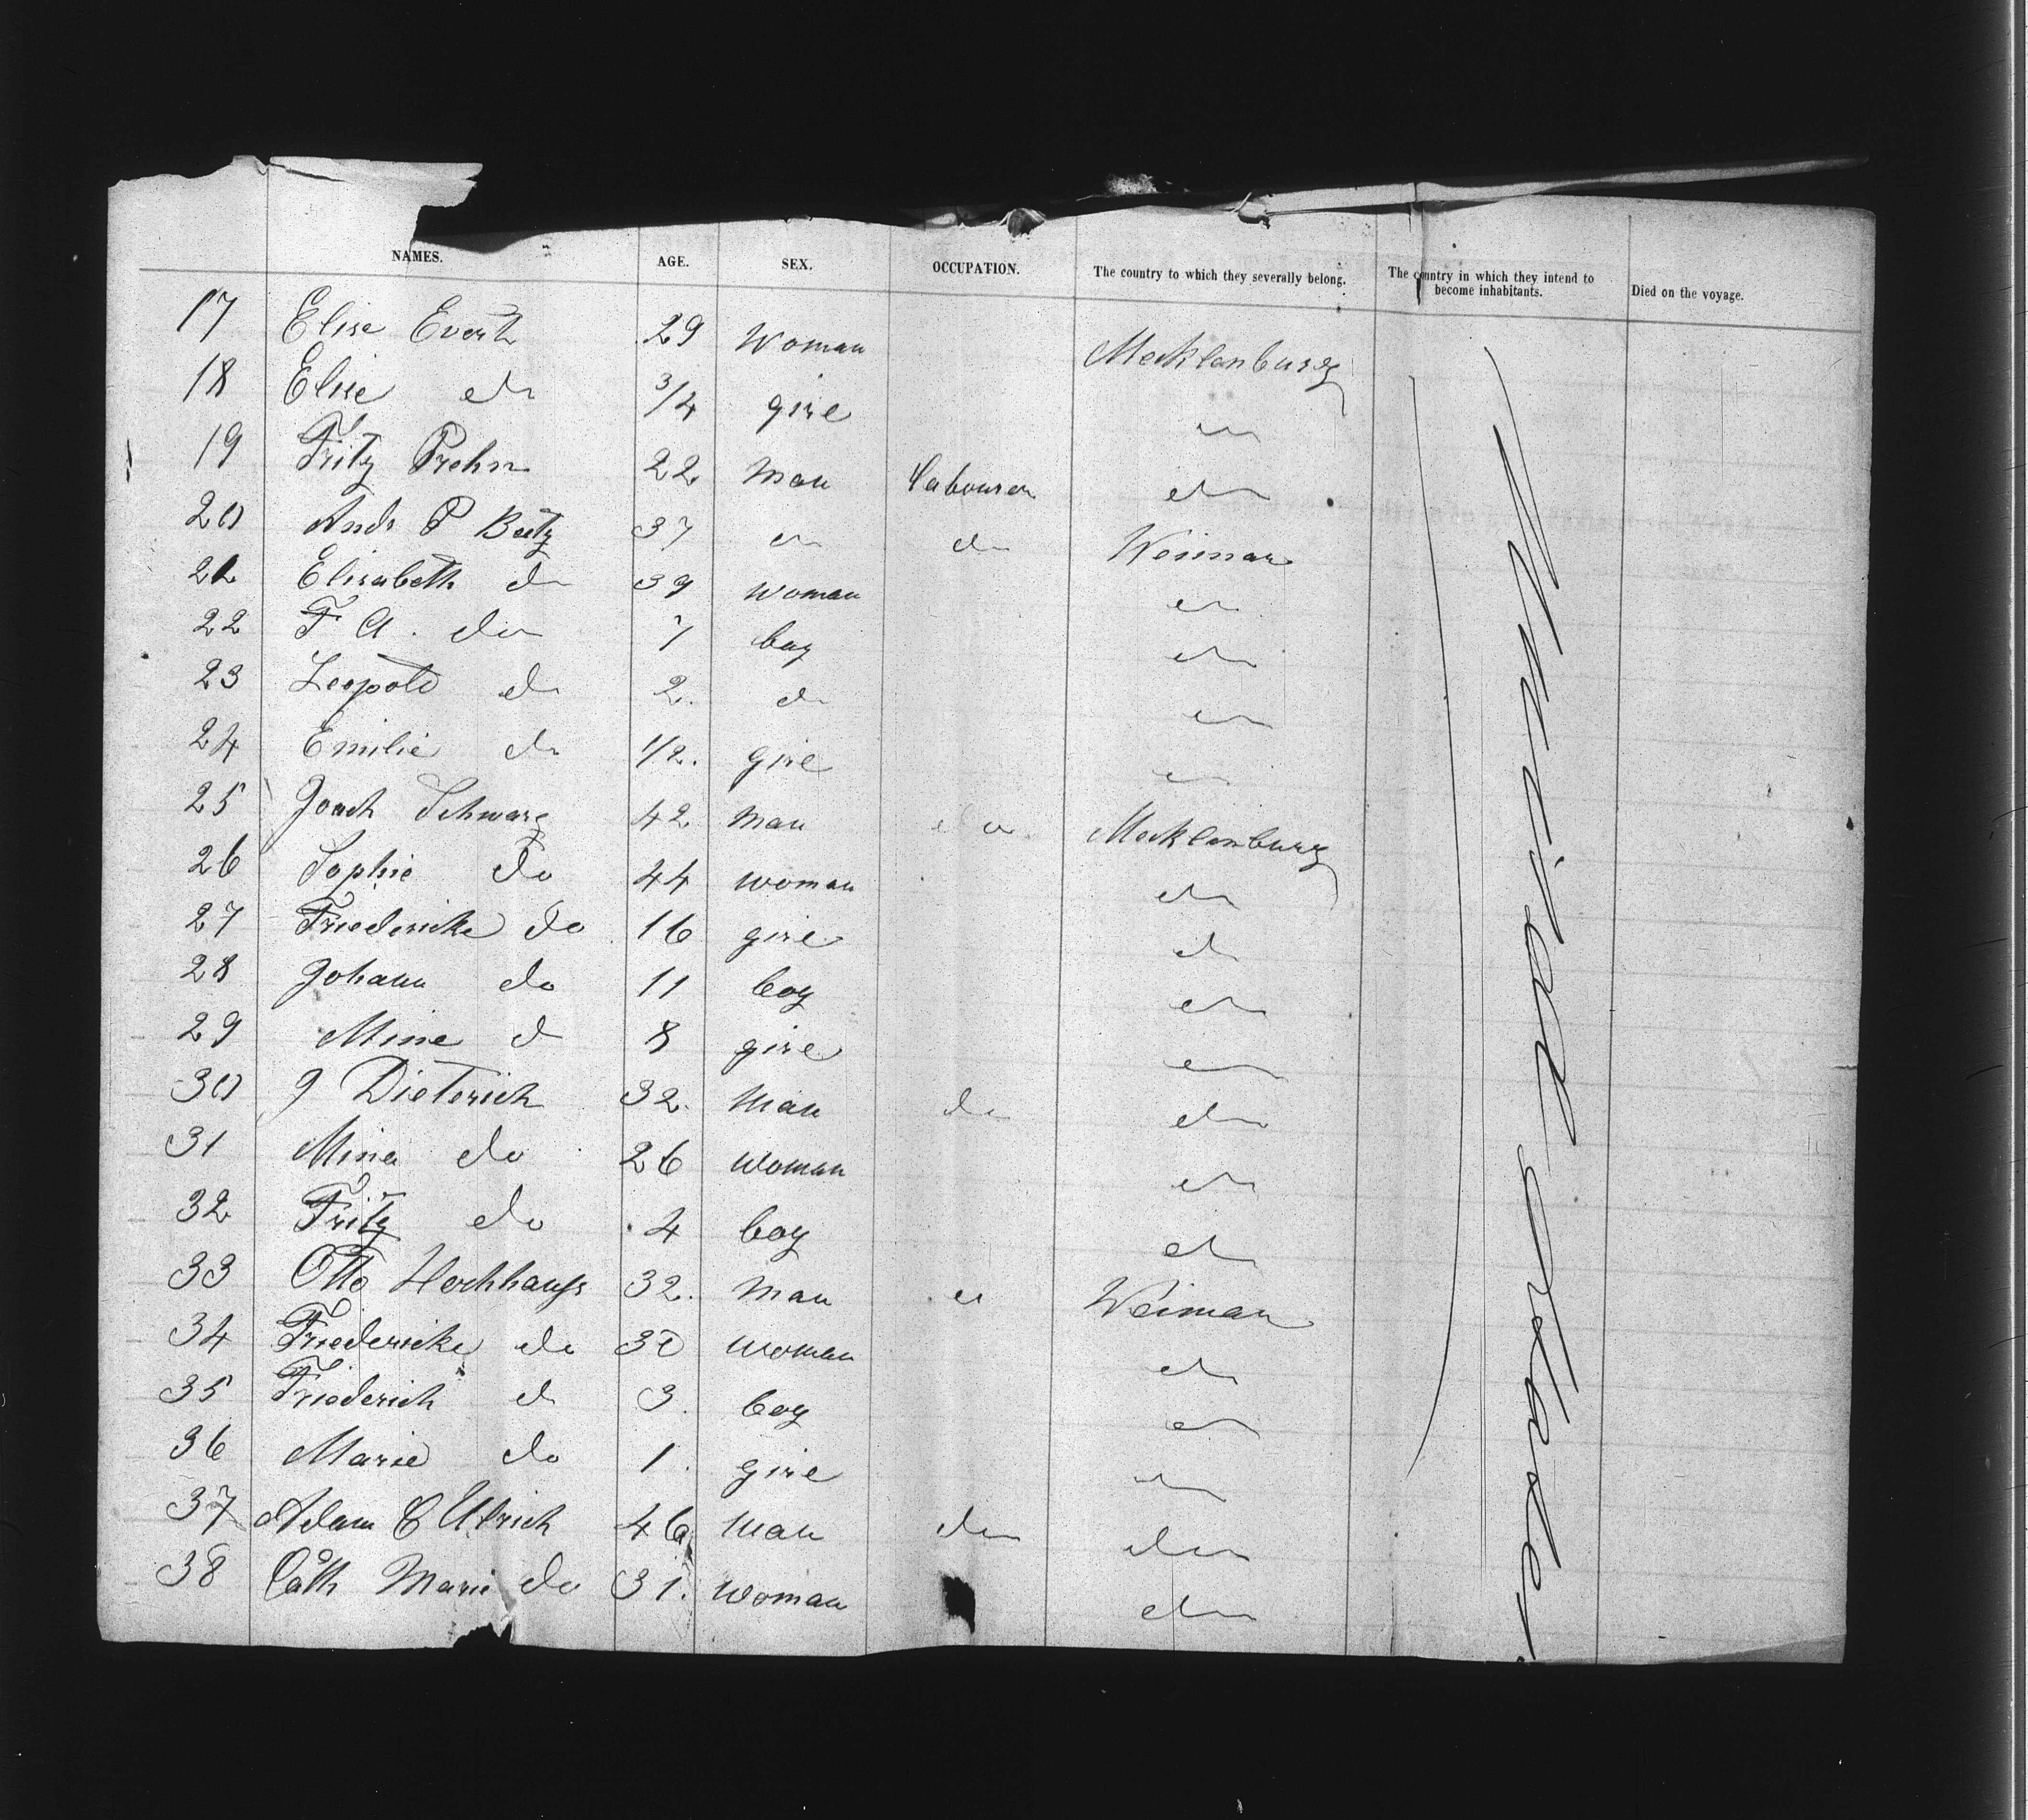 NAMES. AGE. SEX. OCCUPATION. The country to which they severally belong. The country in which they intend to become inhabitants. Died on the voyage.
17 Elise Evert 29 Woman Mecklenburg
18 Elise do 3/4 girl do
19 Fritz Prehn 22 Man Labourer do
20 Andr P Beetz 37 do do Weimar
21 Elisabeth do 39 woman do
22 F A. do 7 boy do
23 Leopold do 2. do do
24 Emilie do 1/2. girl do
25 Joach Schwarz 42 Man do Mecklenburg
26 Sophie do 44 woman do
27 Friedericke do 16 girl do
28 Johann do 11 boy do
29 Mine do 8 girl do
30 J Dieterich 32. Man do do
31 Mina do 26 woman do
32 Fritz do 4 boy do
33 Otto Hochhauss 32. Man do Weimar
34 Friedericke do 30 woman do
35 Friederich do 3. boy do
36 Marie do 1. girl do
37 Adam C Ulrich 46 Man do do
38 Cath Marie do 31. woman do
United States.